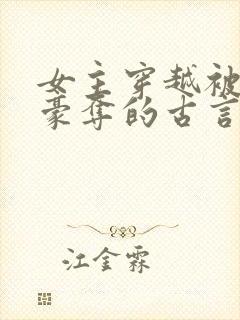 女主穿越被
豪夺的古言
江金霖